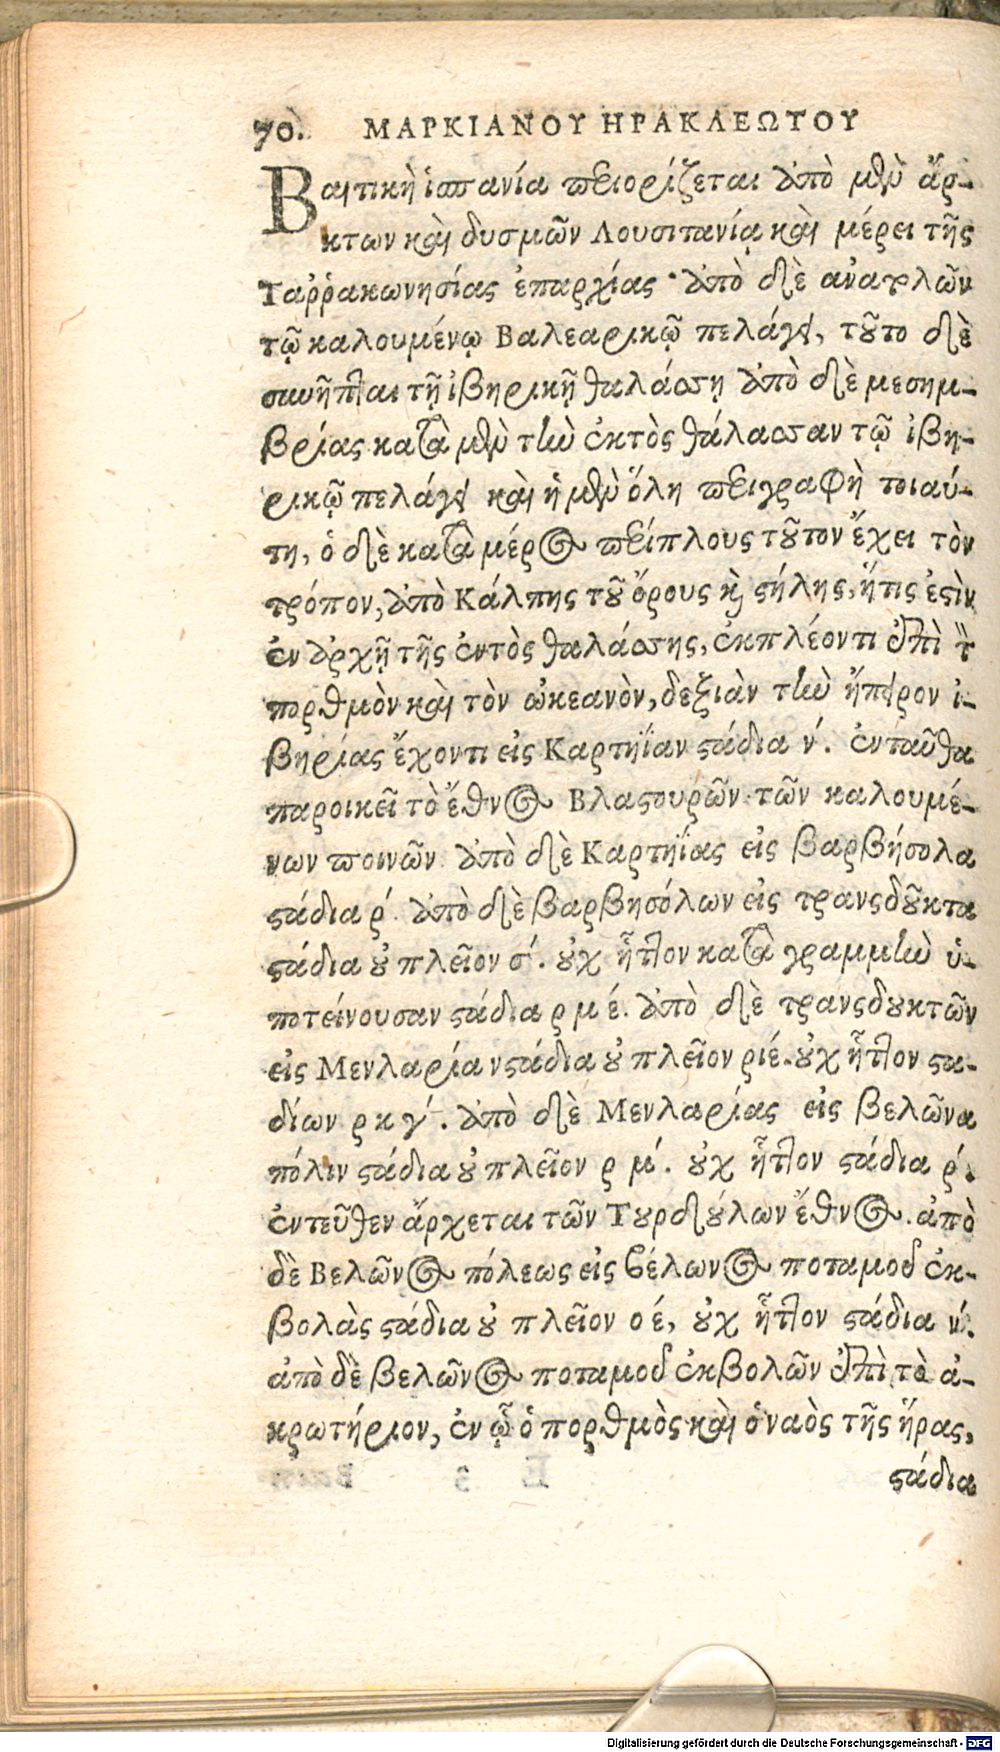 70. ΜΑΡΚΙΑΝΟΥ ΗΡΑΚΛΕΩΤΟΥ
Βαιτικὴ ἱσπανία περιορίζεται ἀπὸ μὲν ἄρ-
κτων καὶ δυσμῶν Λουσιτανίᾳ καὶ μέρει τῆς
Ταῤῥακωνησίας ἐπαρχίας · ἀπὸ δὲ ἀνατλῶν
τῷ καλουμένῳ Βαλεαρικῷ πελάγει, τοῦτο δὲ
συνῆπται τῇ ἰβηρικῇ θαλάσσῃ ἀπὸ δὲ μεσημ-
βρίας κατὰ μὲν τὴν ἐκτὸς θάλασσαν τῷ ἰβη-
ρικῷ πελάγει καὶ ἡ μὲν ὅλη περιγραφὴ τοιαύ-
τη, ὁ δὲ κατὰ μέρος περίπλους τοῦτον ἔχει τὸν
τρόπον, ἀπὸ Κάλπης τοῦ ὄρους καὶ στήλης, ἥτις ἐστὶν
ἐν ἀρχῇ τῆς ἐντὸς θαλάσσης, ἐκπλέοντι ἐπὶ τὸν
πορθμὸν καὶ τὸν ὠκεανὸν, δεξιὰν τὴν ἤπειρον ἰ-
βηρίας ἔχοντι εἰς Καρτηΐαν στάδια ν΄. ἐνταῦθα
παροικεῖ τὸ ἔθνος Βλαστουρῶν τῶν καλουμέ-
νων ποινῶν ἀπὸ δὲ Καρτηΐας εἰς βαρβήσολα
στάδια ρ΄. ἀπὸ δὲ βαρβησόλων εἰς τρανςδοῦκτα
στάδια οὐ πλεῖον σ΄. οὐχ ἧττον κατὰ γραμμὴν ὑ-
ποτείνουσαν στάδια ρ μ έ. ἀπὸ δὲ τρανςδουκτῶν
εἰς Μενλαρίαν στάδια οὐ πλεῖον ριέ. οὐχ ἧττον στα-
δίων ρ κ γ΄. ἀπὸ δὲ Μενλαρίας εἰς βελῶνα
πόλιν στάδια οὐ πλεῖον ρ μ΄. οὐχ ἧττον στάδια ρ΄.
ἐντεῦθεν ἄρχεται τῶν Τουρδούλων ἔθνος. ἀπὸ
δὲ Βελῶνος πόλεως εἰς βέλωνος ποταμοῦ ἐκ-
βολὰς στάδια οὐ πλεῖον ο έ, οὐχ ἧττον στάδια ν΄.
ἀπὸ δὲ βελῶνος ποταμοῦ ἐκβολῶν ἐπὶ τὸ ἀ-
κρωτήριον, ἐν ᾧ ὁ πορθμὸς καὶ ὁ ναὸς τῆς ἥρας,
στάδια
Digitalisierung gefördert durch die Deutsche Forschungsgemeinschaft - DFG